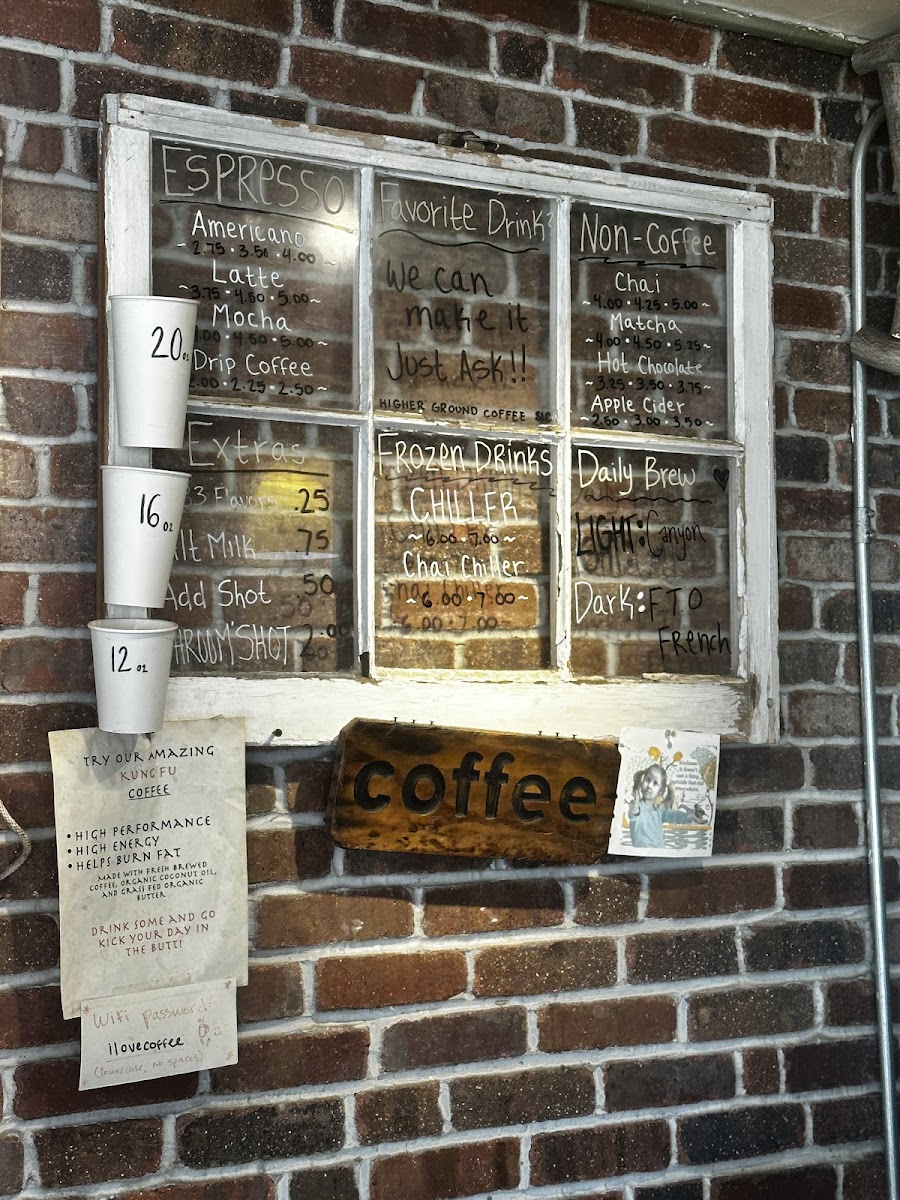 ESPRESSO
Americano
~ 2.75 • 3.50 • 4.00 ~
Latte
~3.75 • 4.50 • 5.00~
Mocha
.00 • 4.50 • 5.00~
Drip Coffee
.00 • 2.25 • 2.50 ~
Favorite Drink?
We can
make it
Just Ask!!
HIGHER GROUND COFFEE
Non-Coffee
Chai
~4.00 • 4.25 • 5.00~
Matcha
~4.00 • 4.50 • 5.25~
Hot Chocolate
~3.25 • 3.50 • 3.75~
Apple Cider
3.00 • 3.50~
20oz
16oz
12oz
Extras
Flavors .25
Alt Milk .75
Add Shot .50
SHROOM'SHOT 2.00
Frozen Drinks
CHILLER
~6.00 • 7.00~
Chai Chiller
~6.00 • 7.00~
Daily Brew
LIGHT: Canyon
Dark: F.T.O
French
coffee
TRY OUR AMAZING
KUNG FU
COFFEE
• HIGH PERFORMANCE
• HIGH ENERGY
• HELPS BURN FAT
MADE WITH FRESH BREWED
COFFEE, ORGANIC COCONUT OIL,
AND GRASS FED ORGANIC
BUTTER
DRINK SOME AND GO
KICK YOUR DAY IN
THE BUTT!
WiFi password:
ilovecoffee
(lowercase, no spaces)